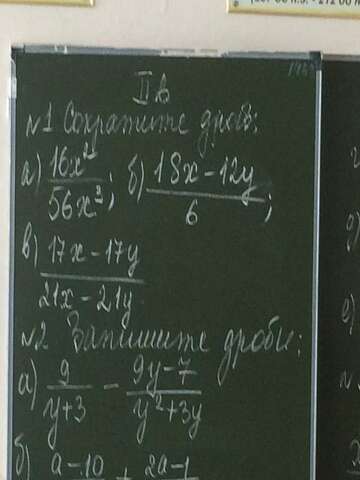 II в
№1 Сократите дробь:
а) 16x²/56x³; б) (18x – 12y)/6;
в) (17x – 17y)/(21x – 21y)
№2 Запишите дробью:
а) 9/(y+3) – (9y–7)/(y²+3y)
б) a–10 + 2a–1